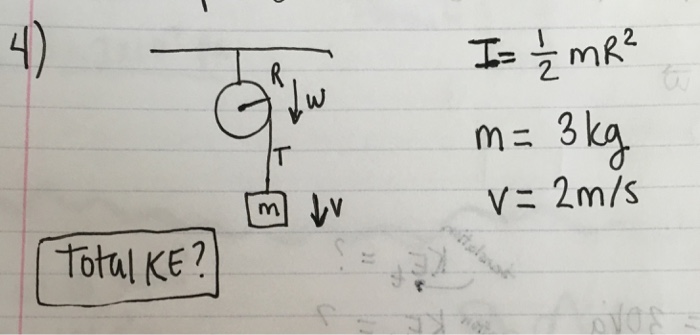 4)
R
W
T
m
V
I = 1/2 mR²
m = 3 kg
v = 2m/s
Total KE?